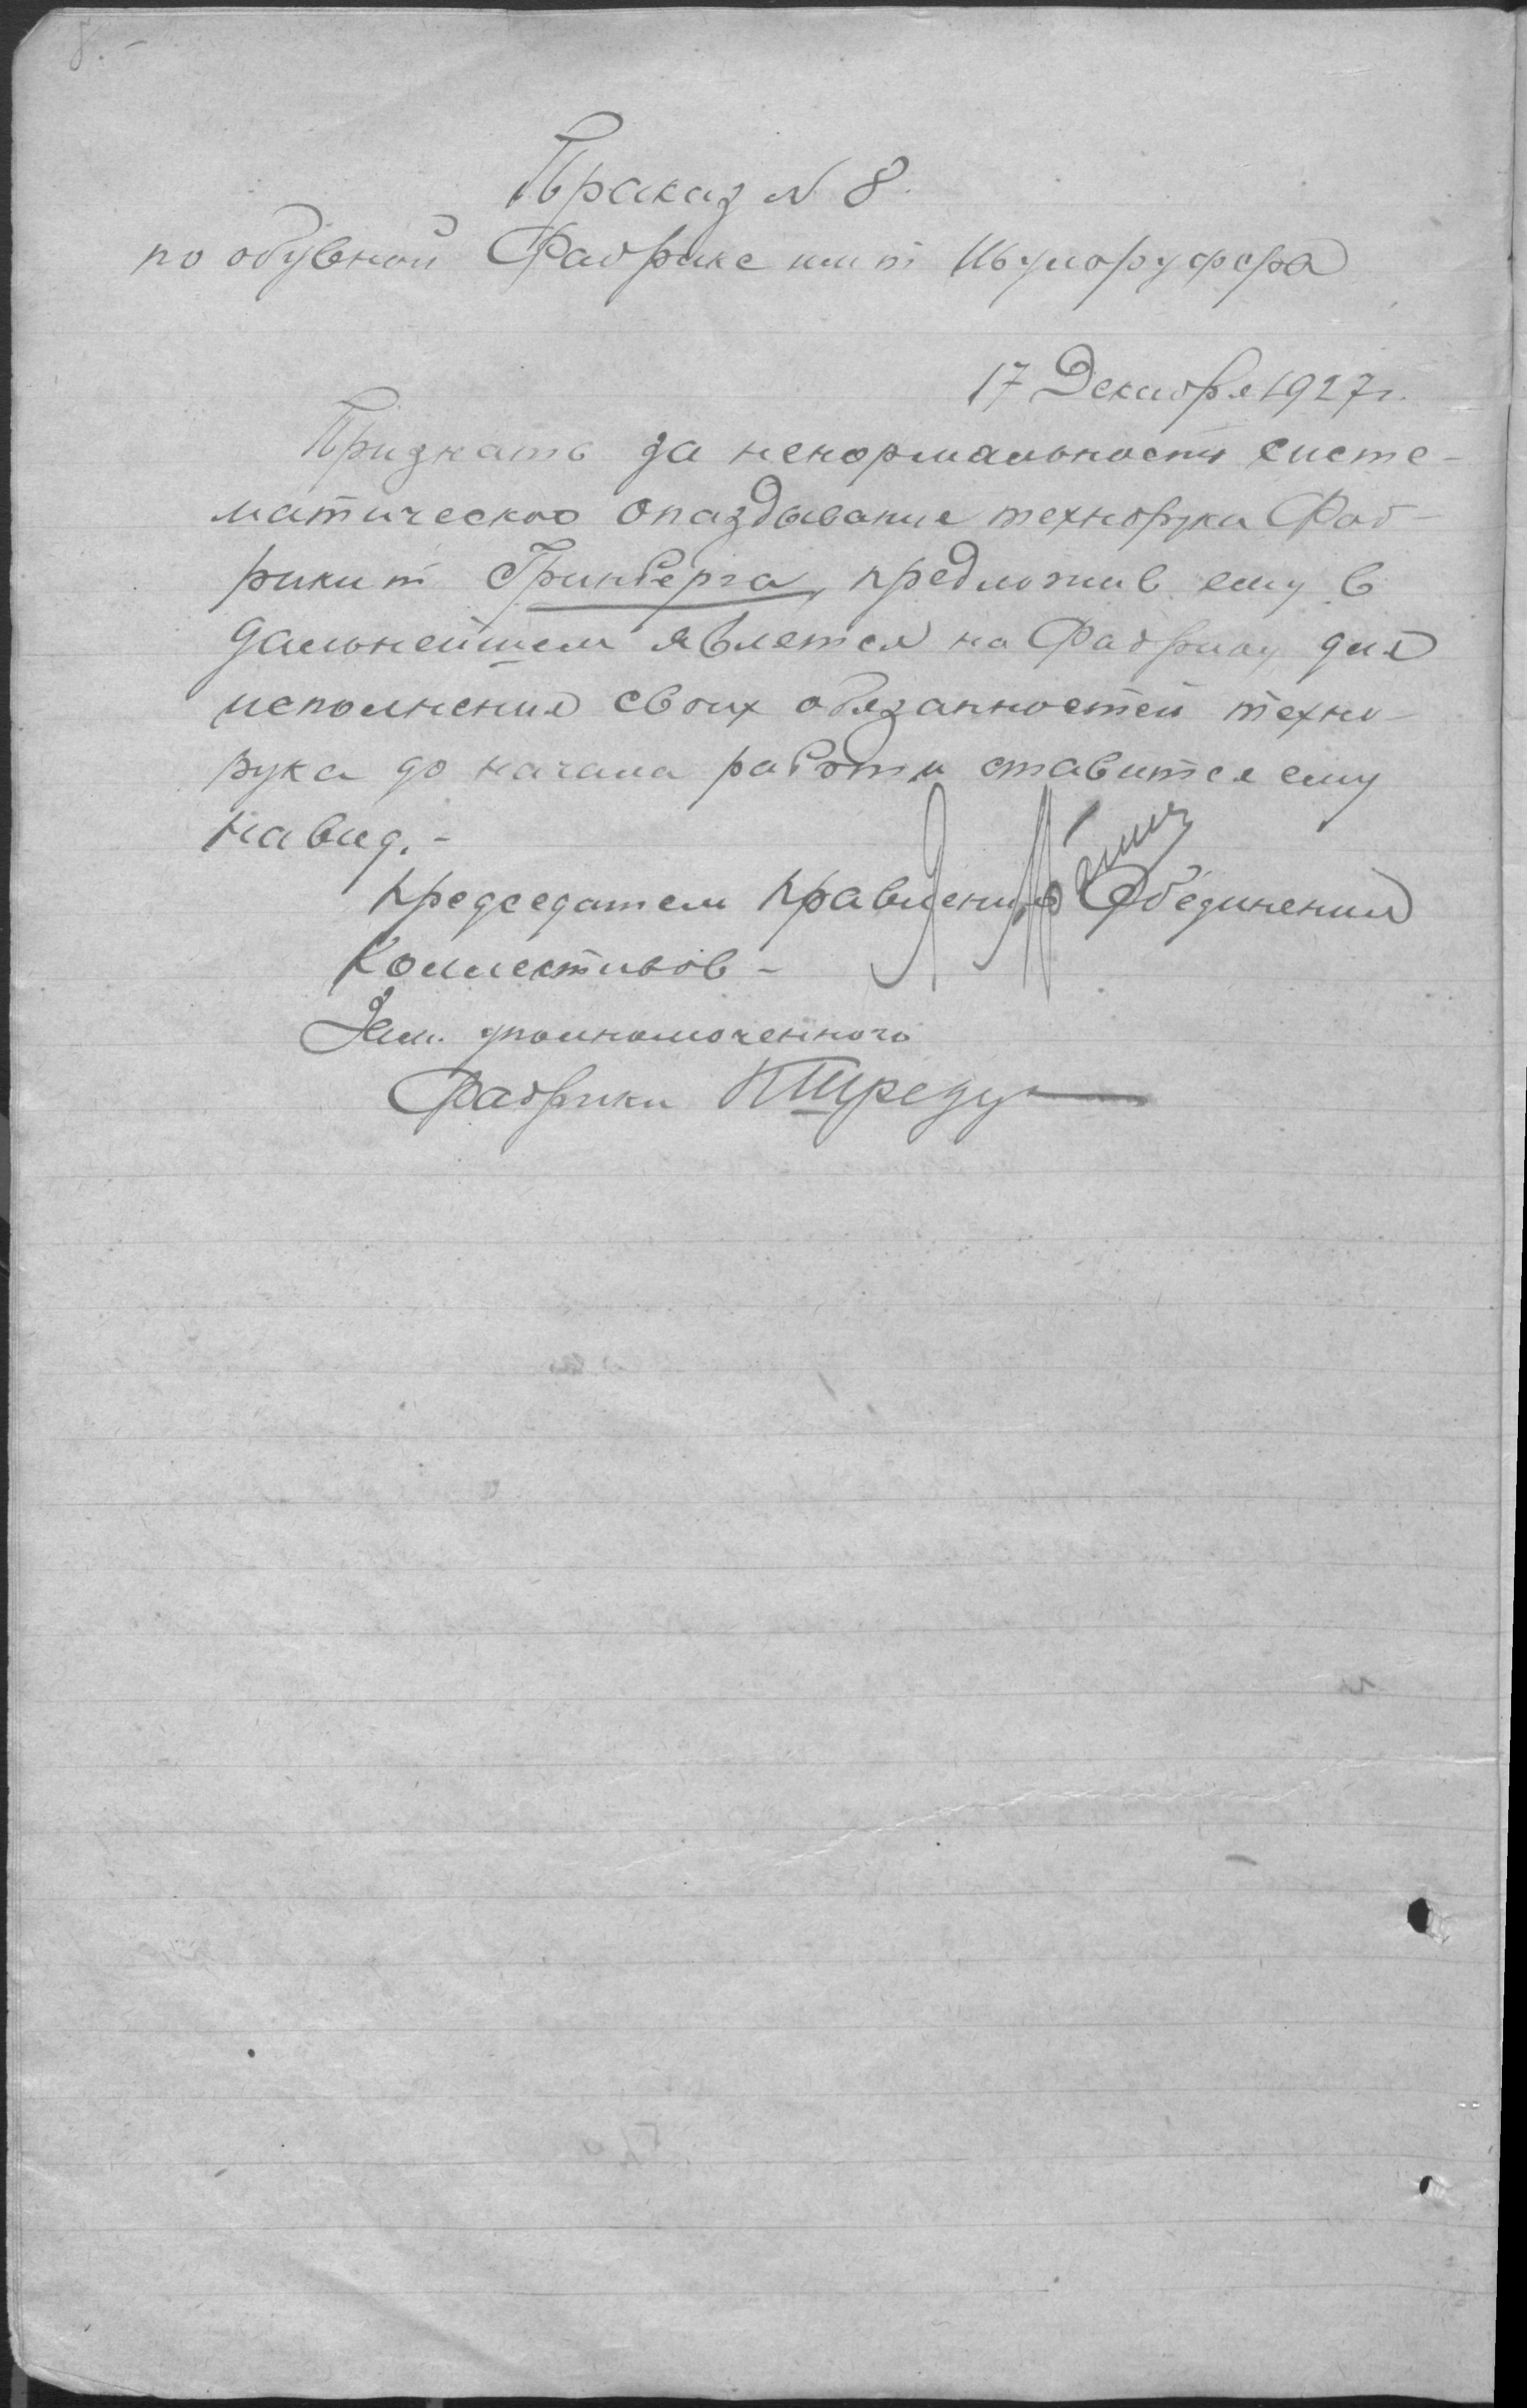 8. -
Приказ N 8.
по обувной Фабрике им т
17 Декабря 1927 г.
Признать за ненормальность систе-
матическое опаздывание технорука Фаб-
рики т Гринберга, предложив ему в
дальнейшем являтся на Фабрику для
исполнения своих обязанностей техно-
рука до начала работы ставится ему
на вид. -
Председатель Правления Обединения
Коллективов -
Зам. уполномоченного
Фабрики